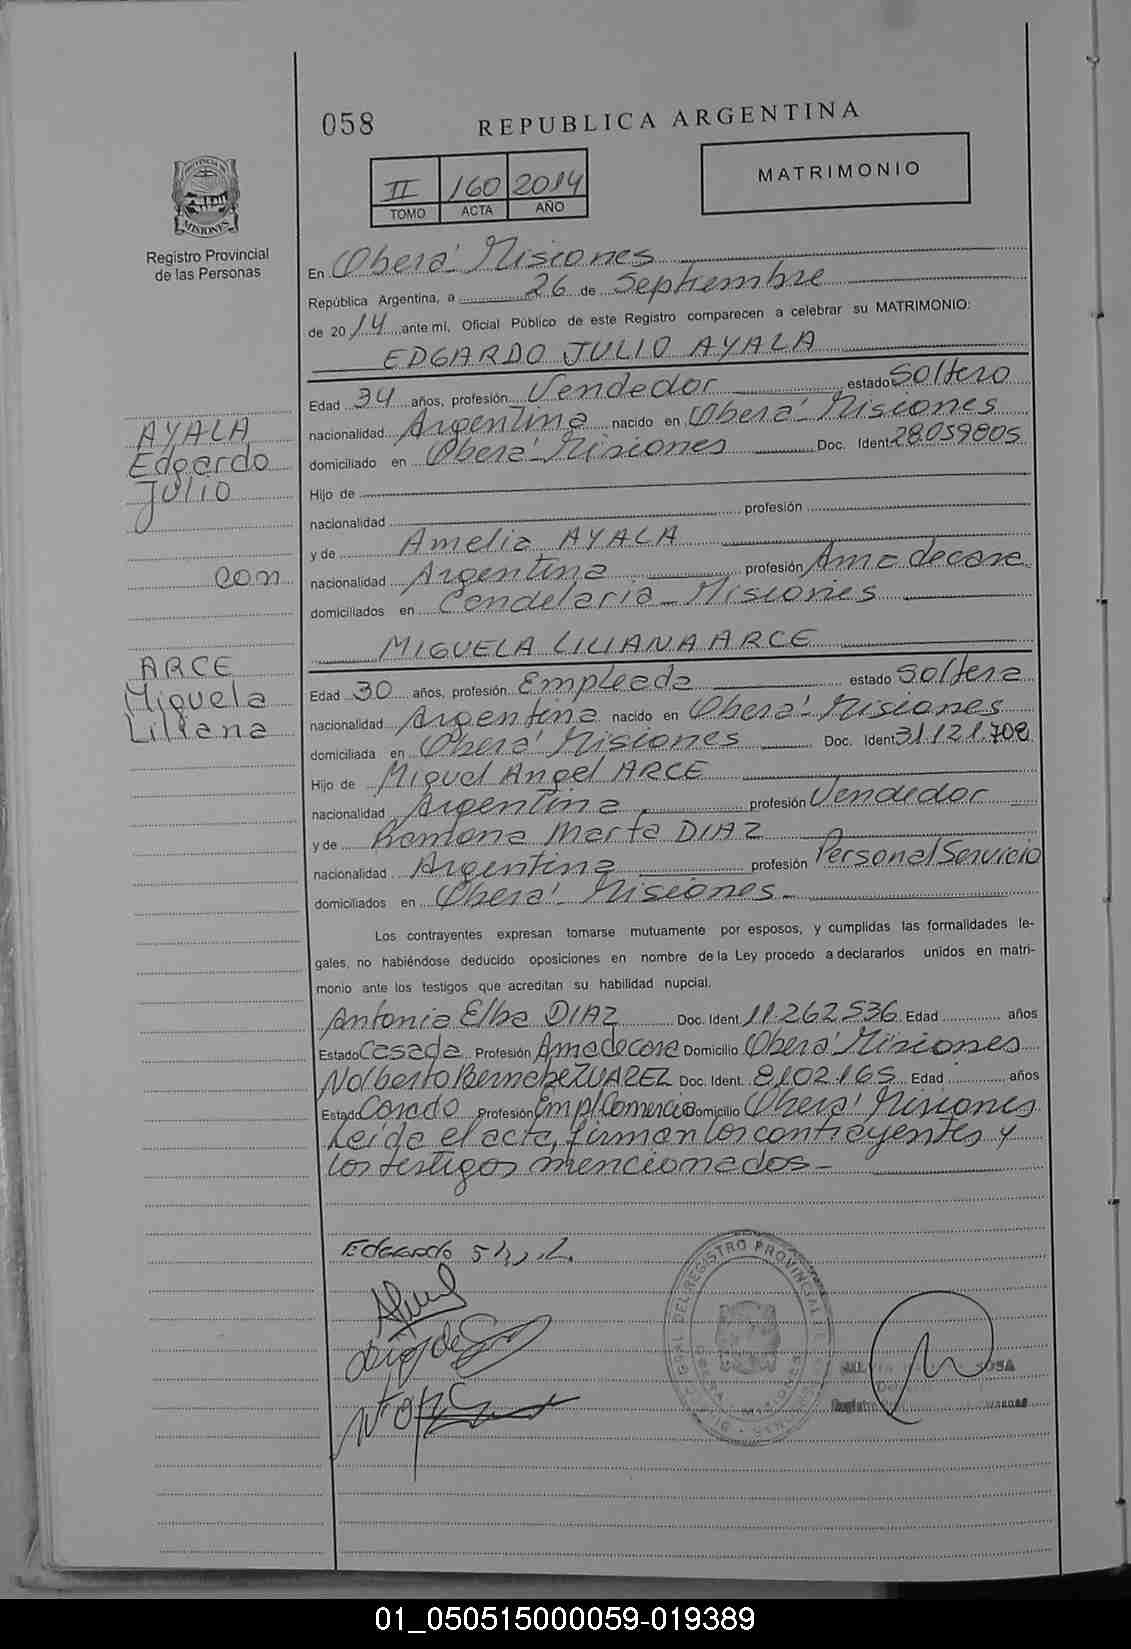 058
REPUBLICA ARGENTINA
II 160 2014
TOMO ACTA AÑO
MATRIMONIO
PROVINCIA DE
MISIONES
Registro Provincial
de las Personas
En Oberá Misiones
República Argentina, a 26 de Septiembre
de 2014 ante mí, Oficial Público de este Registro comparecen a celebrar su MATRIMONIO:
EDGARDO JULIO AYALA
Edad 34 años, profesión Vendedor estado Soltero
nacionalidad Argentina nacido en Oberá Misiones
domiciliado en Oberá - Misiones Doc. Ident 28.059805
Hijo de
nacionalidad profesión
y de Amelia AYALA
nacionalidad Argentina profesión Ama de casa
domiciliados en Candelaria - Misiones
AYALA
Edgardo
Julio
con
ARCE
Miguela
Liliana
MIGUELA LILIANA ARCE
Edad 30 años, profesión Empleada estado Soltera
nacionalidad Argentina nacido en Oberá - Misiones
domiciliada en Oberá Misiones Doc. Ident 31.121.708
Hijo de Miguel Angel ARCE
nacionalidad Argentina profesión Vendedor
y de Ramona Marta DIAZ
nacionalidad Argentina profesión Personal Servicio
domiciliados en Oberá - Misiones -
Los contrayentes expresan tomarse mutuamente por esposos, y cumplidas las formalidades le-
gales, no habiéndose deducido oposiciones en nombre de la Ley procedo a declararlos unidos en matri-
monio ante los testigos que acreditan su habilidad nupcial.
Antonia Elba DIAZ Doc. Ident. 11.262.536 Edad años
Estado Casada Profesión Ama de casa Domicilio Oberá Misiones
Nolberto Bernabe ZUAREZ Doc. Ident. 8.102.165 Edad años
Estado Casado Profesión Emp/Comercio Domicilio Oberá Misiones
Leída el acta, firman los contrayentes y
los testigos mencionados -
Edgardo
DEL REGISTRO PROVINCIAL DE
OBERA - MISIONES
01_050515000059-019389